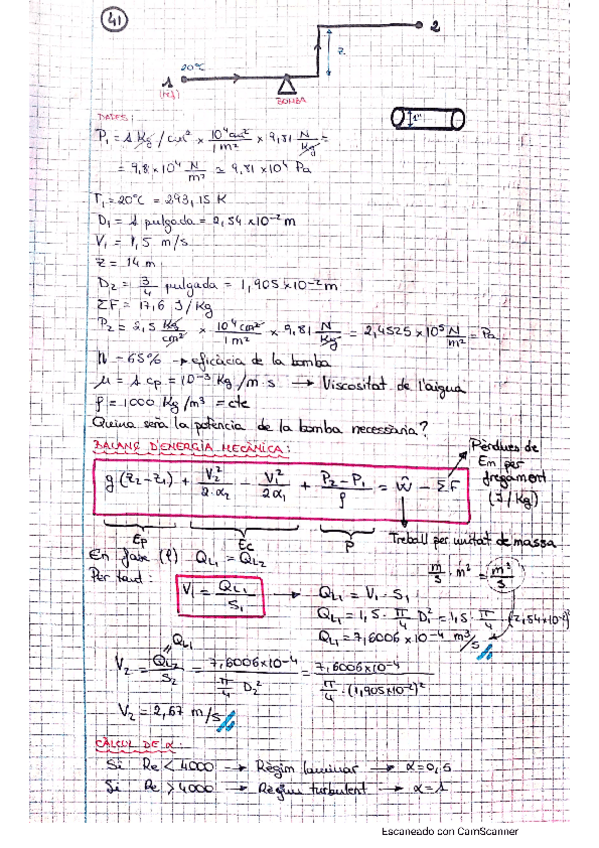 41
2
z
20°C
1
(ref)
BOMBA
1"
DADES:
P₁ = 1 Kg/cm² × 10⁴cm²/1m² × 9,81 N/Kg =
= 9,8×10⁴ N/m² ≃ 9,81×10⁴ Pa
T₁ = 20°C = 293,15 K
D₁ = 1 pulgada = 2,54×10⁻² m
V₁ = 1,5 m/s
z = 14 m
D₂ = 3/4 pulgada = 1,905×10⁻² m
ΣF = 17,6 J/Kg
P₂ = 2,5 Kg/cm² × 10⁴cm²/1m² × 9,81 N/Kg = 2,4525×10⁵ N/m² = Pa
N - 65% → eficàcia de la bomba
μ = 1 cp = 10⁻³ Kg/m·s → Viscositat de l'aigua
ρ = 1000 Kg/m³ = cte
Quina seria la potència de la bomba necessària?
BALANÇ D'ENERGIA MECÀNICA:
Pèrdues de
Em per
fregament
(J/Kg)
g(z₂-z₁) + V₂²/2·α₂ - V₁²/2α₁ + P₂-P₁/ρ = Ŵ - ΣF
Ep
Ec
P
Treball per unitat de massa
En fase (l) QL₁ = QL₂
m/s · m² = m³/s
Per tant:
V₁ = QL₁/S₁ → QL₁ = V₁ · S₁
QL₁ = 1,5 · π/4 D₁² = 1,5 · π/4 (2,54×10⁻²)²
QL₁ = 7,6006×10⁻⁴ m³/s
QL₁
V₂ = QL₂/S₂ = 7,6006×10⁻⁴/π/4 D₂² = 7,6006×10⁻⁴/π/4·(1,905×10⁻²)²
V₂ = 2,67 m/s
CÀLCUL DE α
Si Re < 4000 → Règim laminar → α=0,5
Si Re > 4000 → Règim turbulent → α=1
Escaneado con CamScanner